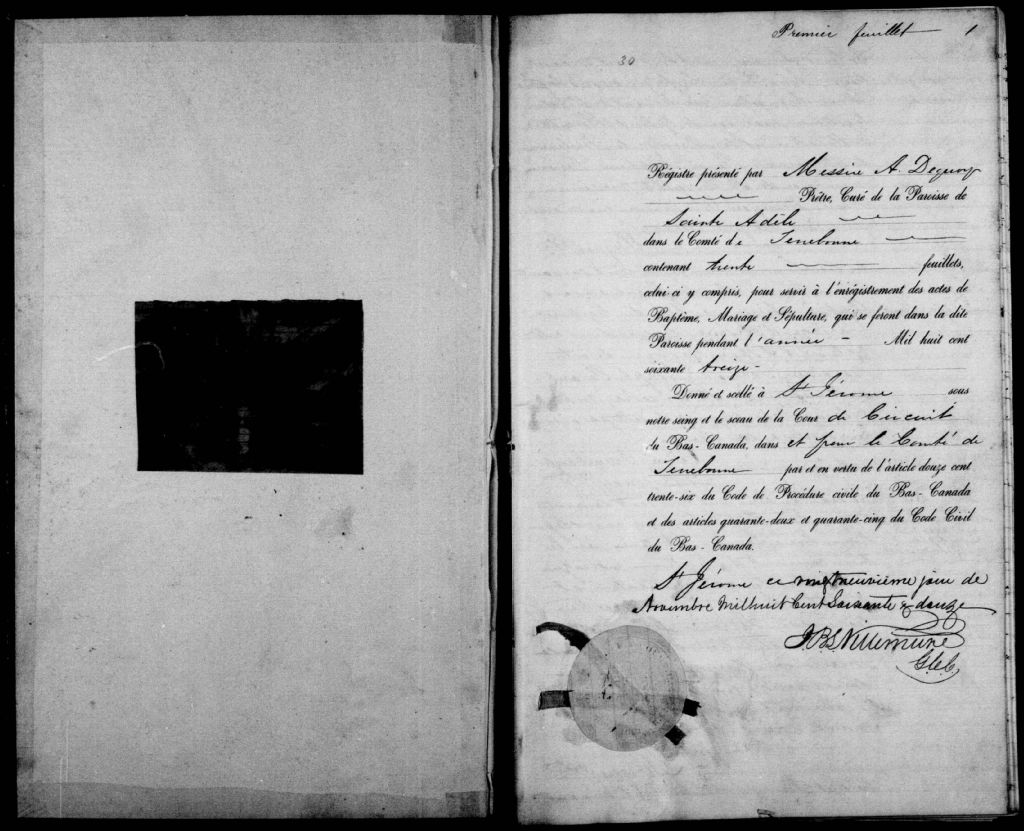 Premier feuillet 1
30
Régistre présenté par Messire A. Dequoy
Prêtre, Curé de la Paroisse de
Sainte Adèle
dans le Comté de Terrebonne
contenant trente feuillets,
celui-ci y compris, pour servir à l'enrégistrement des actes de
Baptême, Mariage et Sépulture, qui se feront dans la dite
Paroisse pendant l'année - Mil huit cent
soixante treize -
Donné et scellé à St Jérome sous
notre seing et le sceau de la Cour de Circuit
du Bas-Canada, dans et pour le Comté de
Terrebonne par et en vertu de l'article douze cent
trente-six du Code de Procédure civile du Bas-Canada
et des articles quarante-deux et quarante-cinq du Code Civil
du Bas-Canada.
St Jérome ce vingtneuvième jour de
Novembre Milhuit Cent Soixante & douze